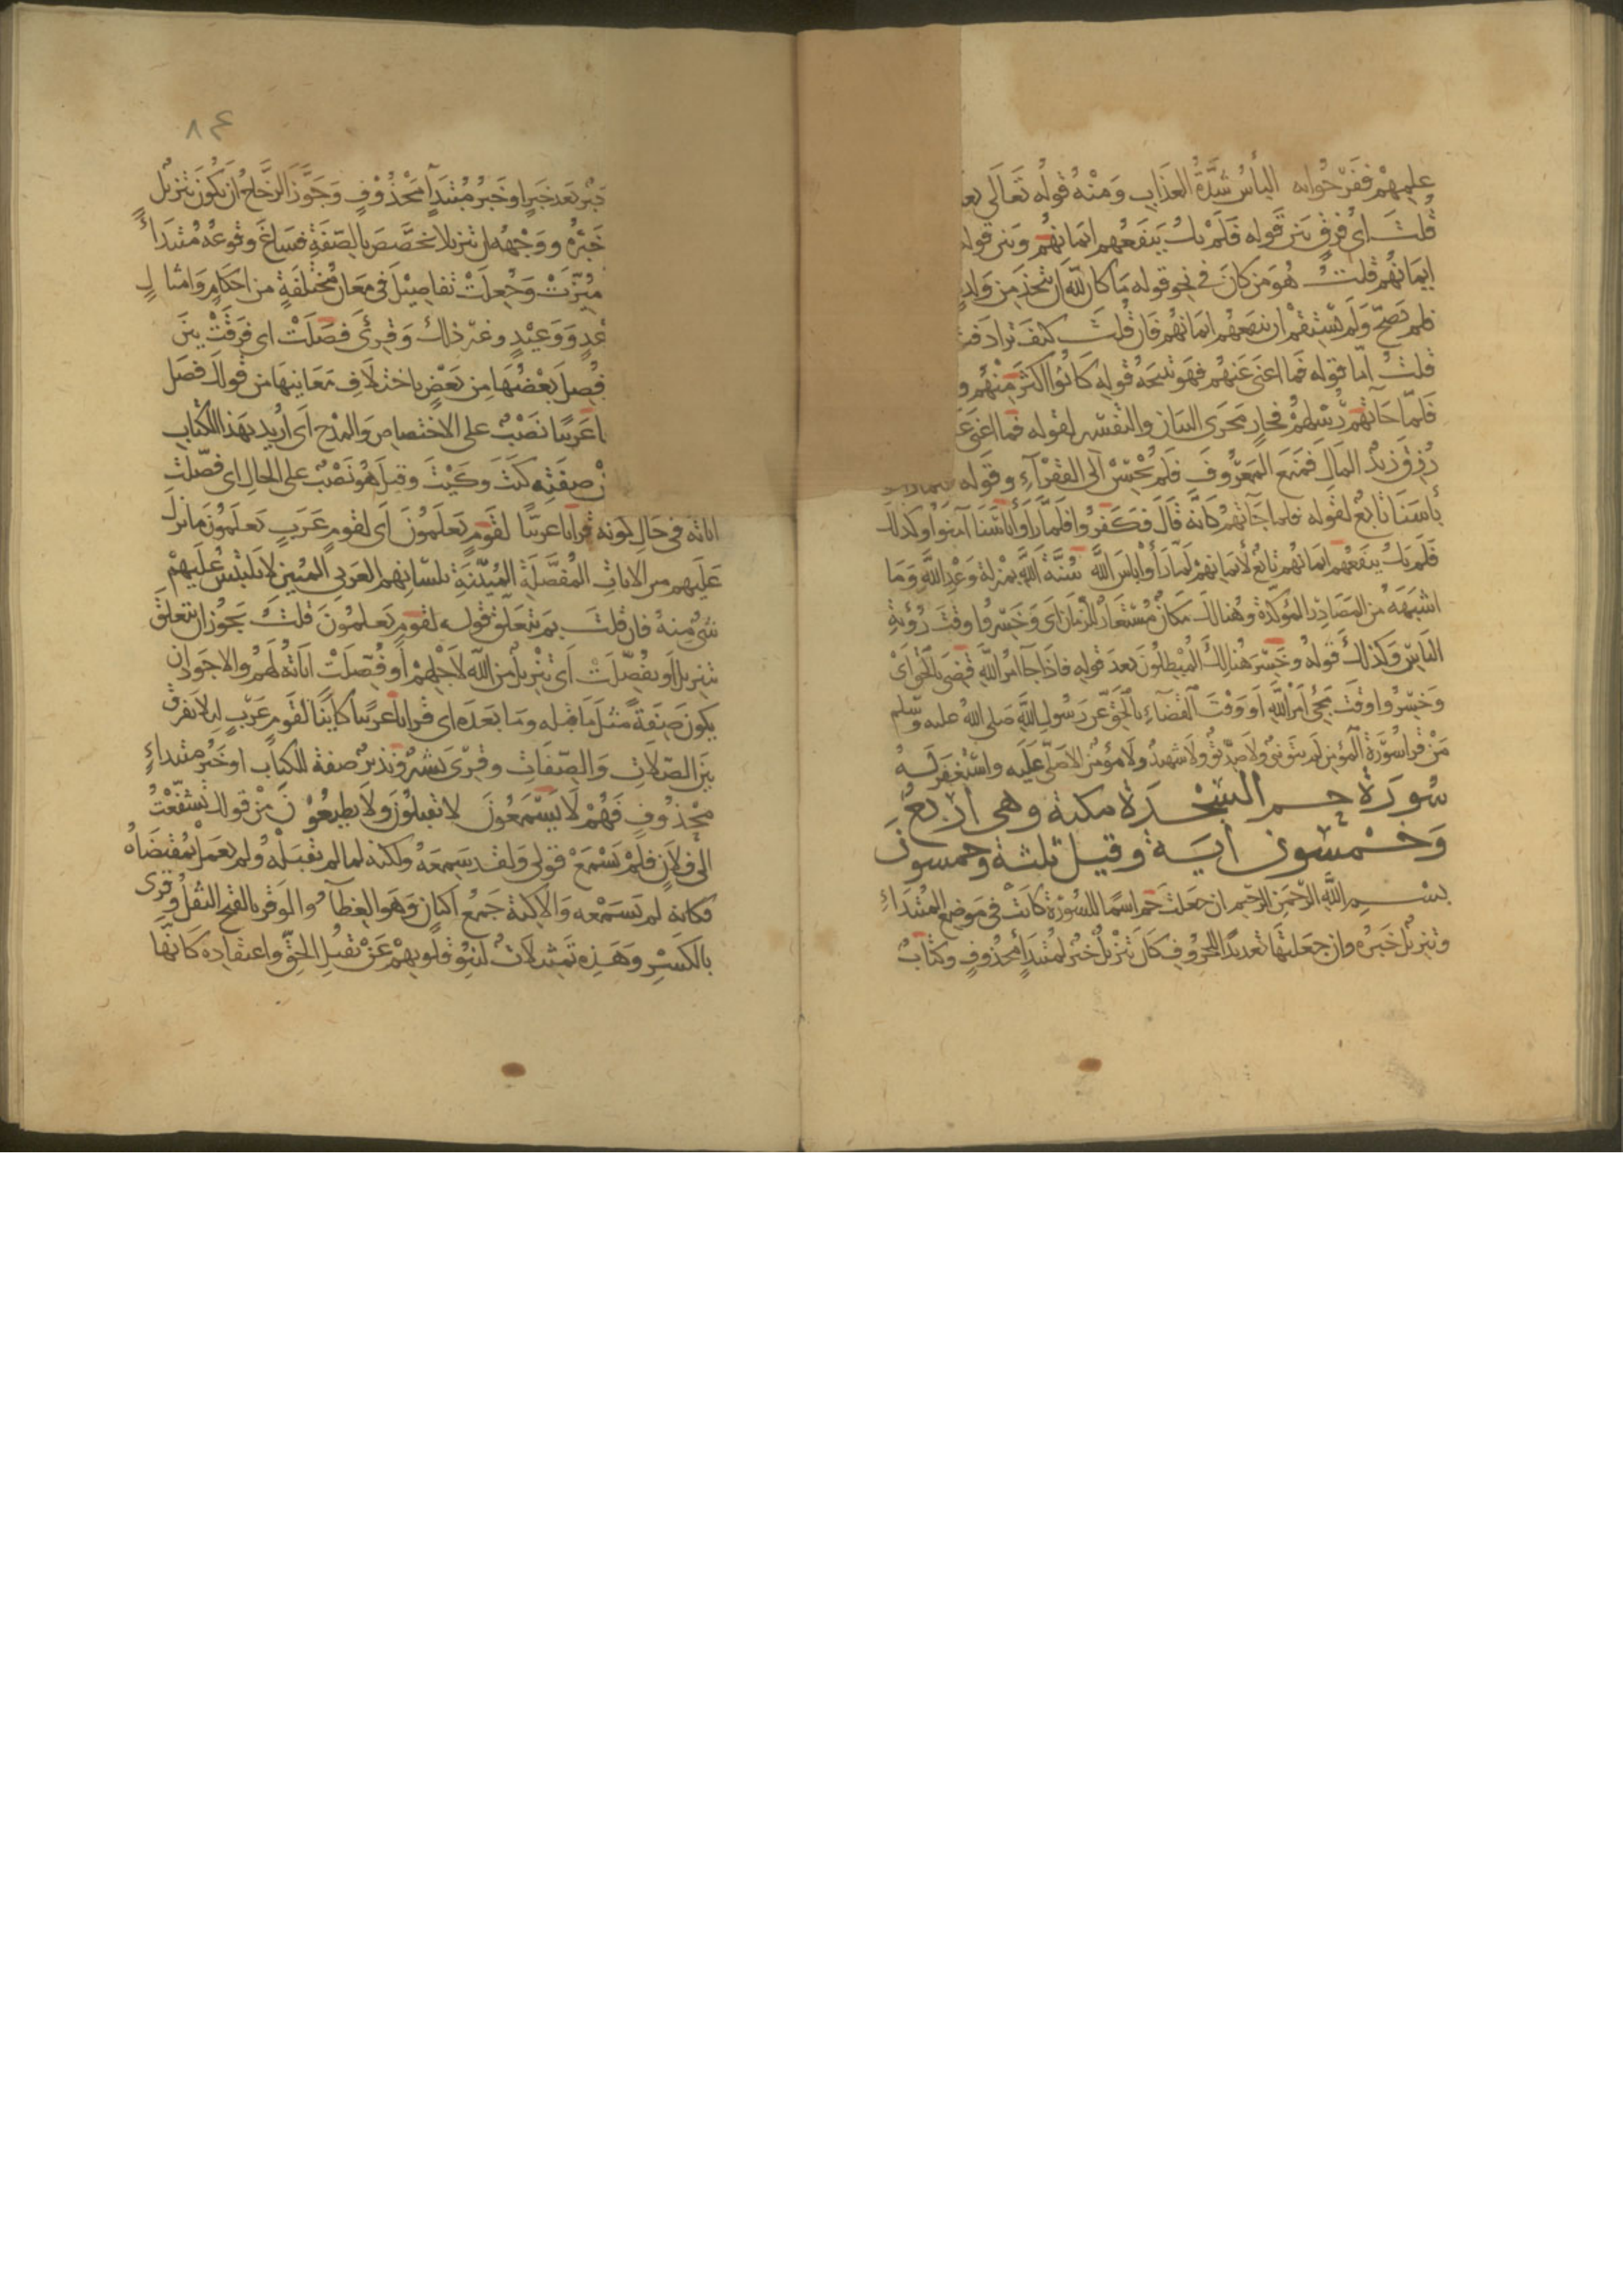 علمهم ففرحوا به البأس شدة العذاب ومنه قوله تعالى
قلت اى فرق بين قوله فلم يك ينفعهم ايمانهم وبين قوله
ايمانهم قلت هو من كان في نحو قوله ما كان لله ان يتخذ من ولد
فلم يصح ولم يستقم ان ينفعهم ايمانهم فان قلت كيف ترادفت
قلت اما قوله فما اغنى عنهم فهو نتيجة قوله كانوا اكثر منهم و
فلما جاتهم رسلهم فجار مجرى البيان والتفسير لقوله فما اغنى
رزق زيد المال فمنع المعروف فلم يحسن الى الفقرآء وقوله
بأسنا تابع لقوله فلما جآتهم كانه قال فكفروا فلما رأوا باسنا آمنوا وكذلك
فلم يك ينفعهم ايمانهم تابع لأيمانهم لما رأوا باس الله سنة الله بمنزلة وعد الله وما
اشبهه من المصادر المؤكدة وهنالك مكان مستعار للزمان اى وخسروا وقت رؤية
الباس وكذلك قوله وخسر هنالك المبطلون بعد قوله فاذا جآ امر الله قضى بالحق اى
وخسروا وقت مجى امر الله او وقت القضاء بالحق عن رسول الله صلى الله عليه وسلم
من قرا سورة المؤمن لم يبق نبى ولا صديق ولا شهيد ولا مؤمن الا صلى عليه واستغفر له
سورة حم السجدة مكية وهى اربع
وخمسون آية وقيل ثلثة وخمسون
بسم الله الرحمن الرحيم ان جعلت حم اسما للسورة كانت في موضع المبتداء
وتنزيل خبره وان جعلتها تعديدا للحروف كان تنزيل خبر لمبتدا محذوف وكتاب
خبر بعد خبر او خبر مبتدا محذوف وجوز الزجاج ان يكون تنزيل
خبره ووجهه ان تنزيلا تخصص بالصفة فساغ وقوعه مبتدأ
ميزت وجعلت تفاصيل في معان مختلفة من احكام وامثال
عد ووعيد وغير ذلك وقرئ فصلت اى فرقت بين
فصل بعضها من بعض باختلاف معانيها من قولك فصل
ا عربيا نصب على الاختصاص والمدح اى اريد بهذا الكتاب
ن صفته كيت وكيت وقيل هو نصب على الحال اى فصلت
اياته في حال كونه قرانا عربيا لقوم يعلمون اى لقوم عرب يعلمون ما نزل
عليهم من الايات المفصلة المبينة بلسانهم العربي المبين لا يلتبس عليهم
شئ منه فان قلت بم يتعلق قوله لقوم يعلمون قلت يجوز ان يتعلق
بتنزيل او بفصلت اى تنزيل من الله لاجلهم او فصلت اياته لهم والاجود ان
يكون صفة مثل ما قبله وما بعده اى قرانا عربيا كاينا لقوم عرب ليلا يفرق
بين الصلات والصفات وقرى بشير ونذير صفة للكتاب او خبر مبتداء
محذوف فهم لا يسمعون لا يقبلون ولا يطيعون من قولك تشفعت
الى فلان فلم يسمع قولى ولقد سمعه ولكنه لما لم يقبله ولم يعمل بمقتضاه
فكانه لم يسمعه والاكنة جمع اكنان وهو الغطآء والوقر بالفتح الثقل وقرى
بالكسر وهذه تمثيلات لنبو قلوبهم عن تقبل الحق واعتقاده كانها